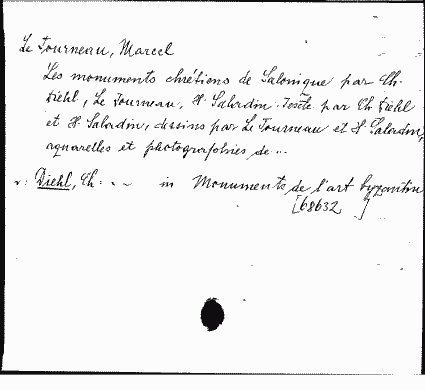 Le Tourneau, Marcel
Les monuments chrétiens de Salonique par Ch.
Diehl, Le Tourneau, H. Saladin. Texte par Ch Diehl
et H. Saladin, dessins par Le Tourneau et H Saladin,
aquarelles et photographies de ...
v: Diehl, Ch: .. in Monuments de l'art byzantin
[68632 ]